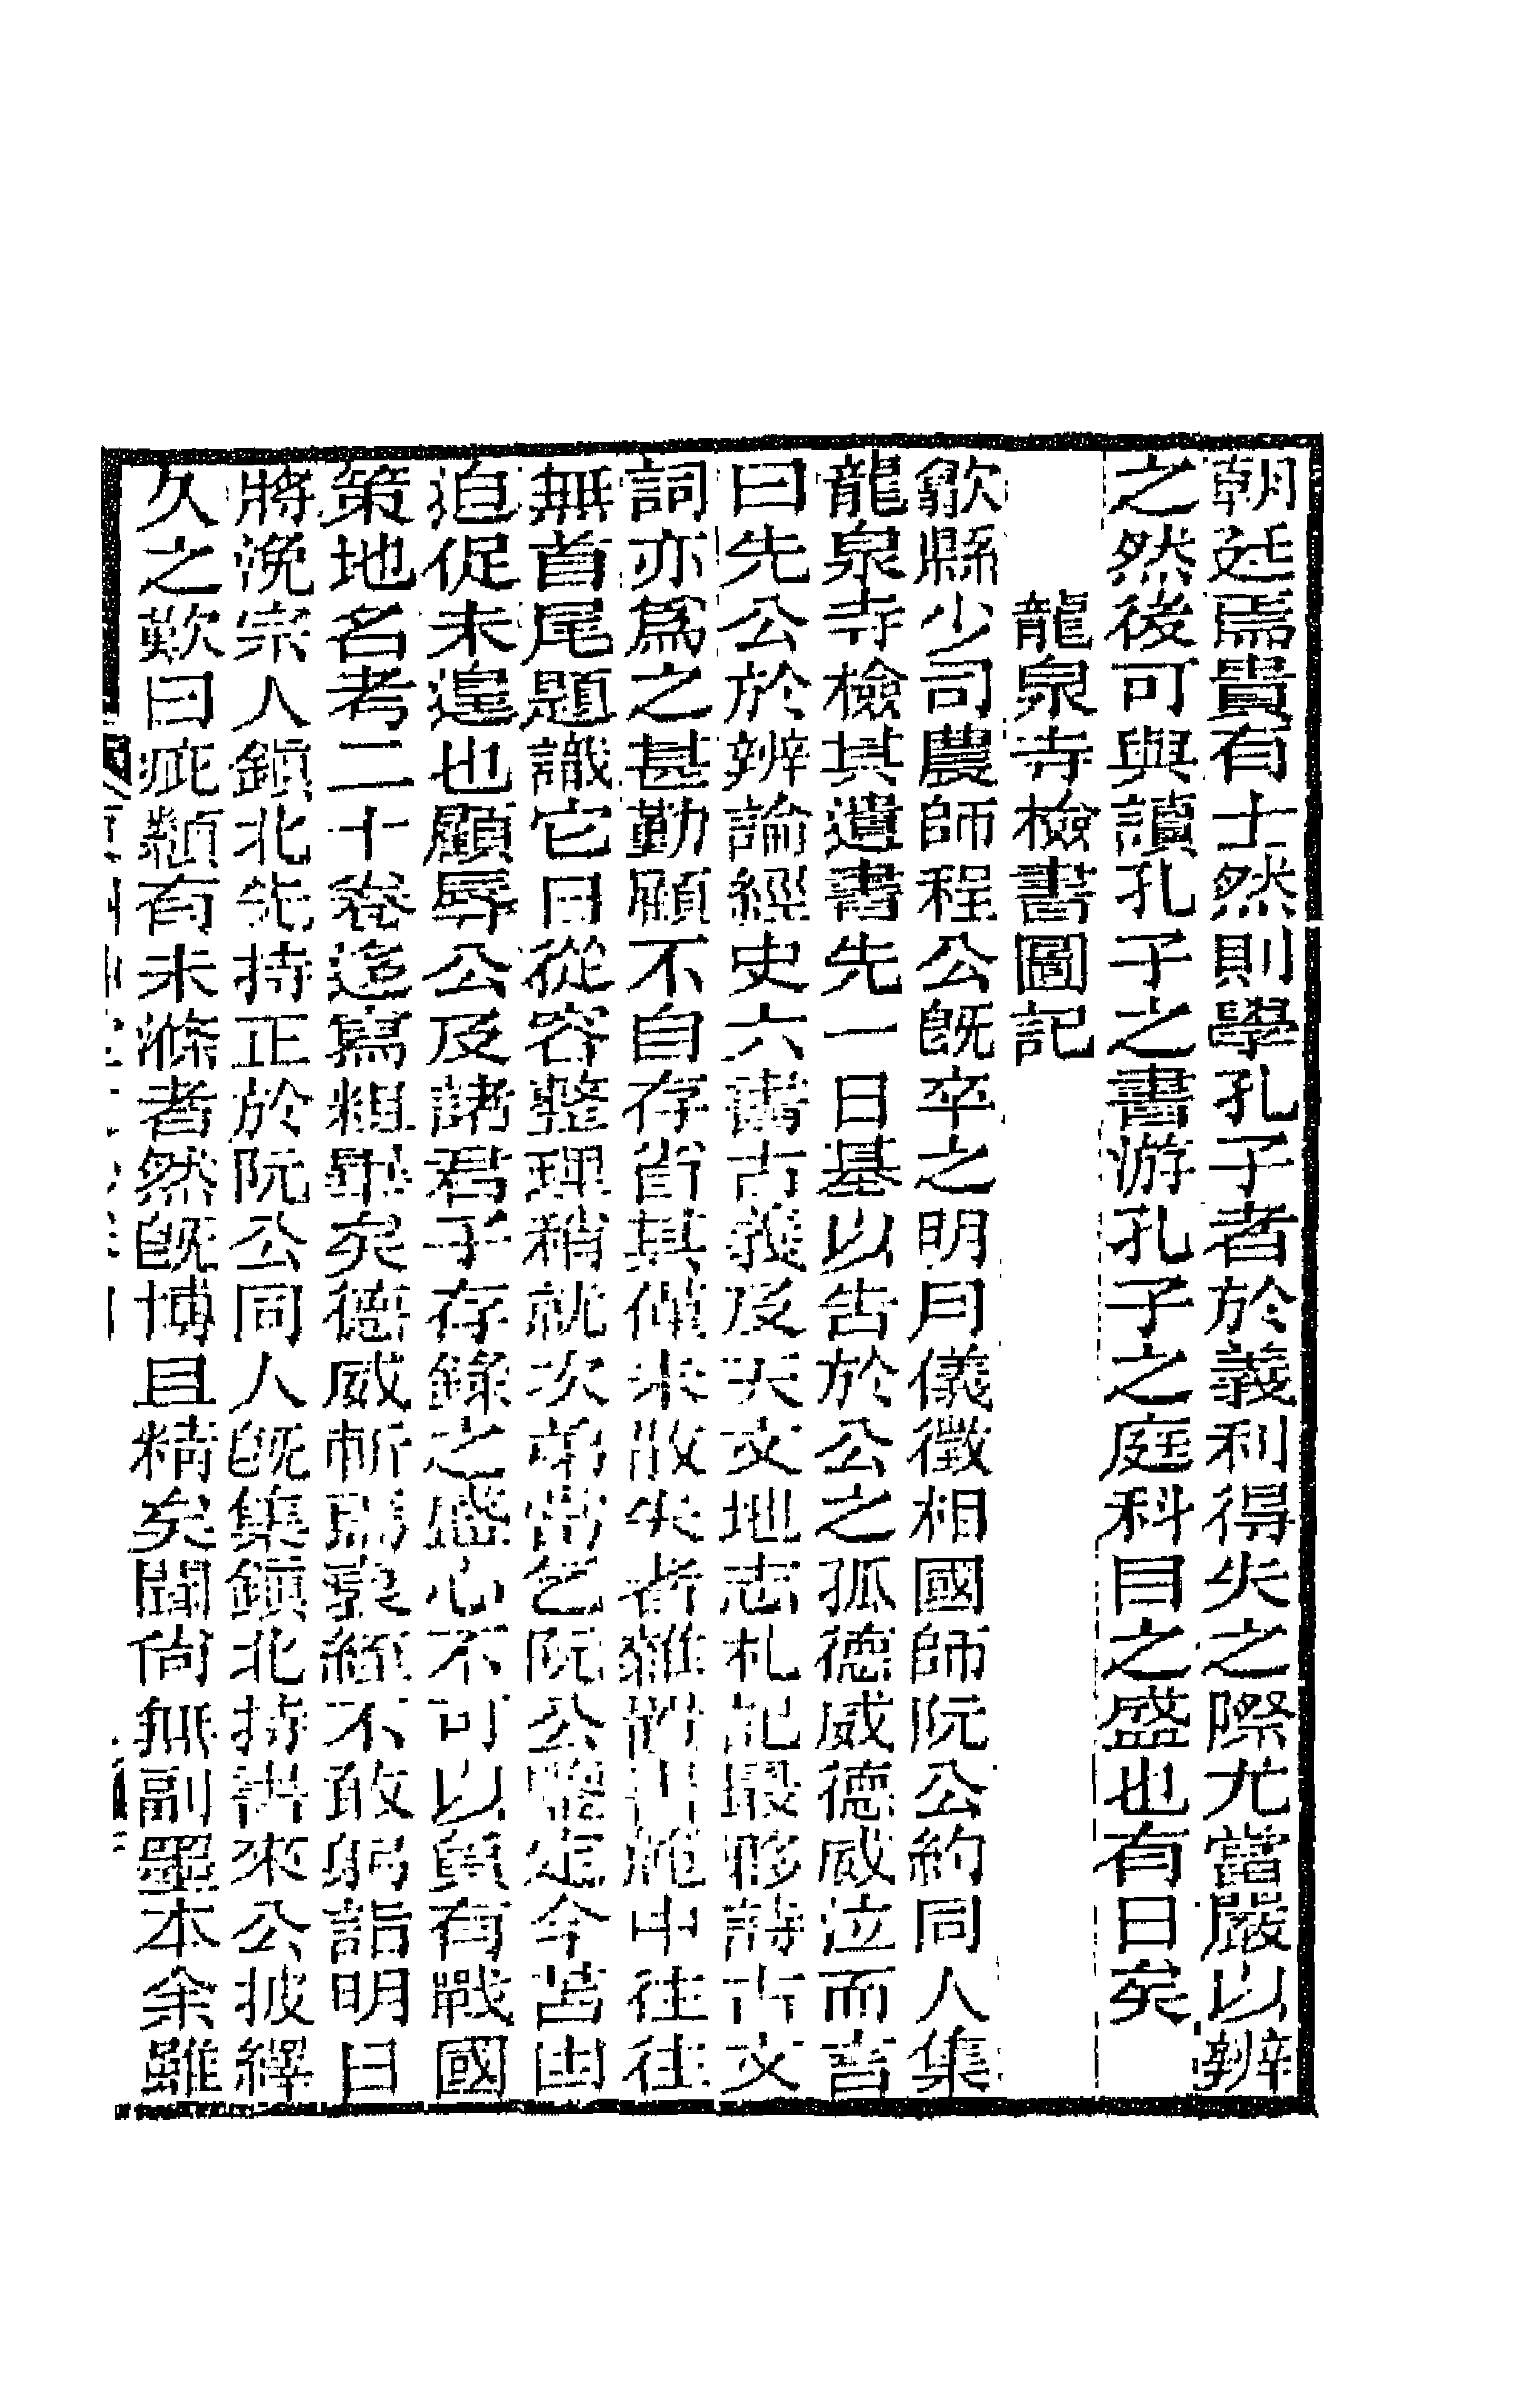 朝廷焉貴有士然則學孔子者於義利得失之際尤當嚴以辨
之然後可與讀孔子之書游孔子之庭科目之盛也有日矣
龍泉寺檢書圖記
歙縣少司農師程公既卒之明月儀徵相國師阮公約同人集
龍泉寺檢其遺書先一日墓以告於公之孤德威德威泣而言
曰先公於辨論經史六書古義及天文地志札記最夥詩古文
詞亦爲之甚勤顧不自存省其僅未散失者雜置中往往
無首尾題識它日從容整理稍就次第當乞阮公鑒定今苫凷
迫促未遑也顧辱公及諸君子存錄之盛心不可以負有戰國
策地名考二十卷迻寫粗畢矣德威斬焉衰絰不敢躬詣明日
將浼宗人鎭北先持正於阮公同人既集鎭北持書來公披繹
久之歎曰疵纇有未滌者然既博且精矣聞尙無副墨本余雖